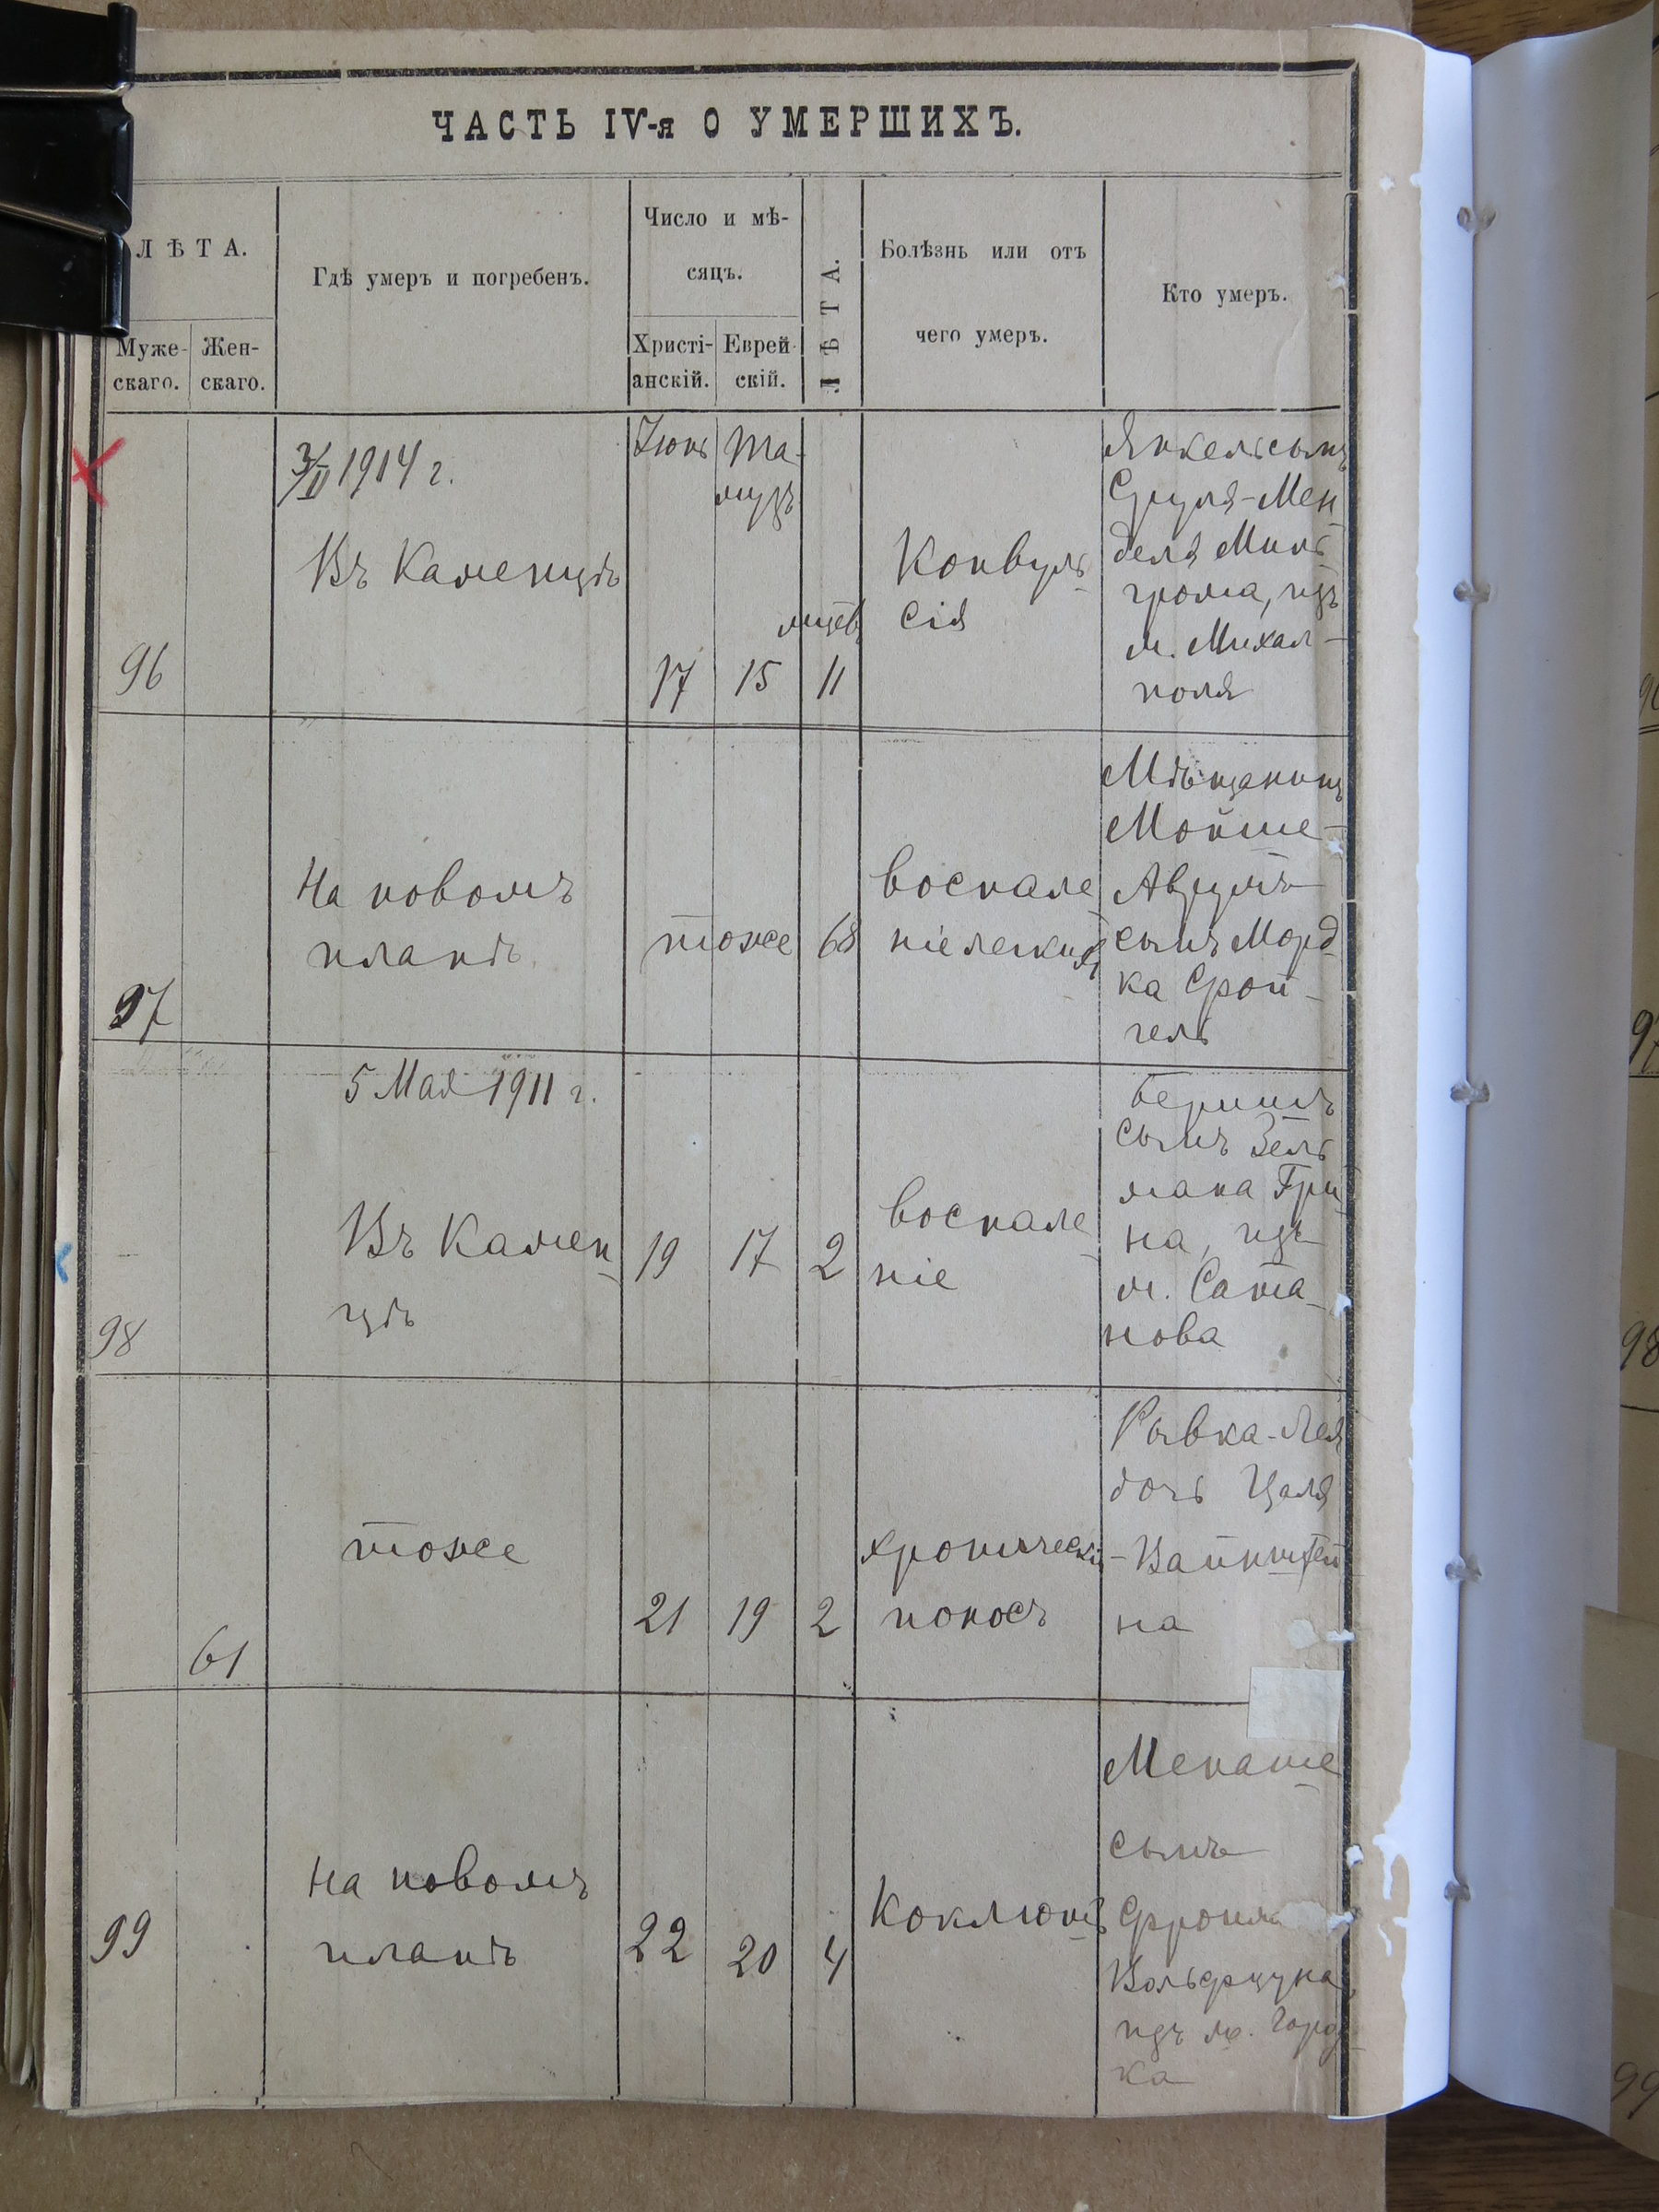 ЧАСТЬ IV-я О УМЕРШИХЪ.
ЛѢТА.
Муже-
скаго.
Жен-
скаго.
Гдѣ умеръ и погребенъ.
Число и мѣ-
сяцъ.
Христі-
анскій.
Еврей-
скій.
ЛѢТА.
Болѣзнь или отъ
чего умеръ.
Кто умеръ.
96
1914 г.
Въ Каменцѣ
Іюнь
17
Та-
музъ
15
11
Конвуль-
сія
Янкель сынъ
Сруля-Мен
деля Миль
грома, изъ
м. Михал-
поля
97
На новомъ
планѣ
тоже
68
воспале
ніе легкихъ
Мѣщанинъ
Мойше-
Аврумъ
сынъ Морд-
ка
98
5 Мая 1911 г.
Въ Камен-
цѣ
19
17
2
воспале-
ніе
Беришъ
сынъ Зель
мана Гри-
на, изъ
м. Сата-
нова
61
тоже
21
19
2
хроническій
поносъ
Рывка-Лея
дочь Целя
Вайнштей
на
99
На новомъ
планѣ
22
20
4
Коклюшъ
Менаше
сынъ
изъ м. Город-
ка
90
97
98
99